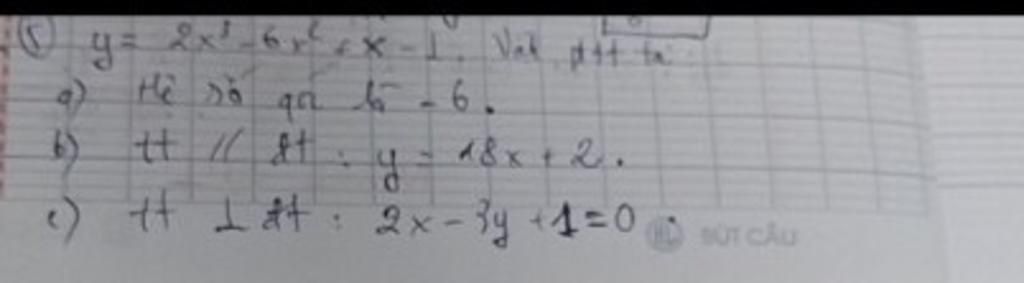 ⑤ y = 2x³ - 6x² + x - 1. Viết ptt tạ
a) Hệ số góc là - 6.
b) tt // đt : y = 18x + 2.
c) tt ⊥ đt : 2x - 3y + 1 = 0.
BÚT CÂU